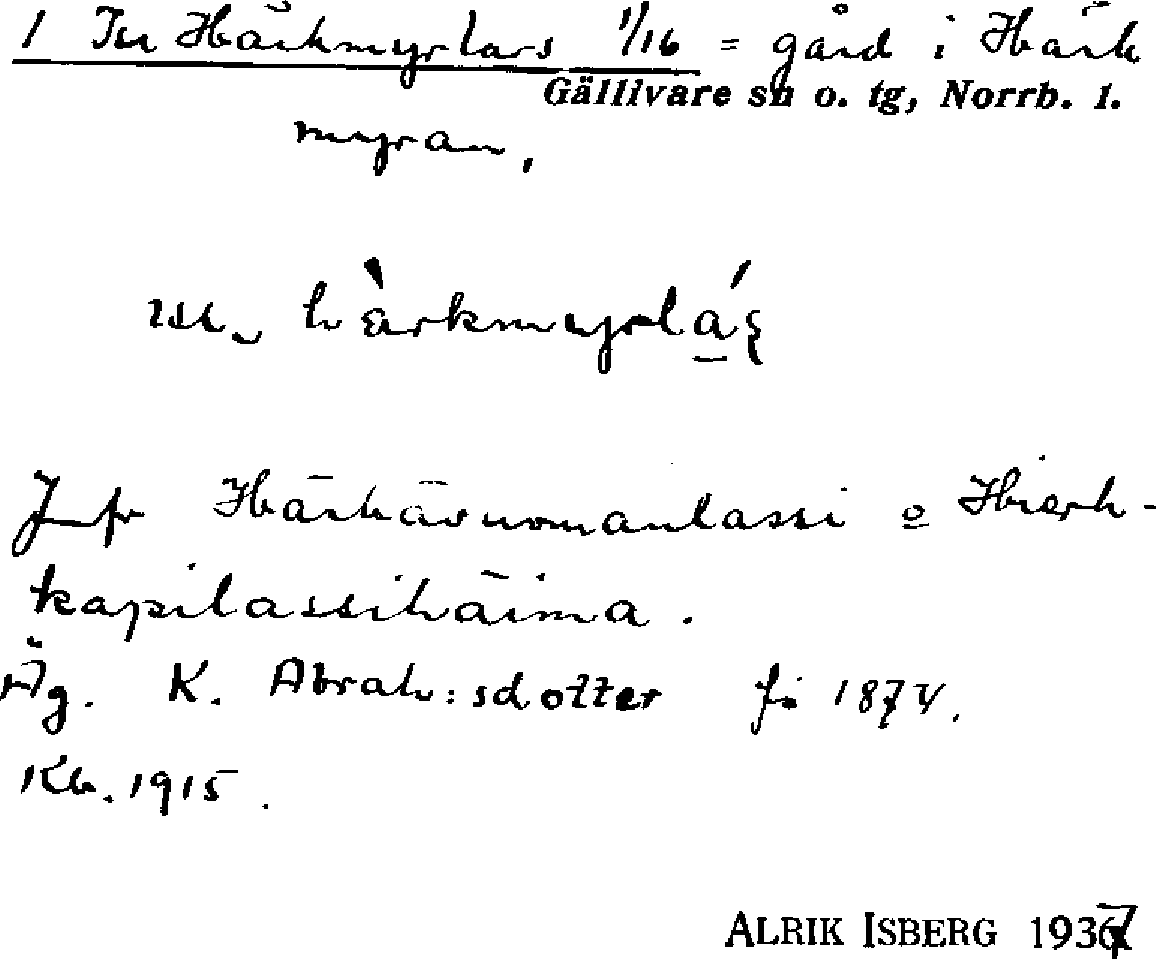 1 In Härkmyrlars 1/16 = gård i Härk
Gällivare sn o. tg, Norrb. l.
myran,
hàrkmyrlá
Jmfr Härkävuomanlassi o Hierk-
kapilassihäima.
Äg. K. Abrah:sdotter fö 1874.
Kb. 1915.
ALRIK ISBERG 1937